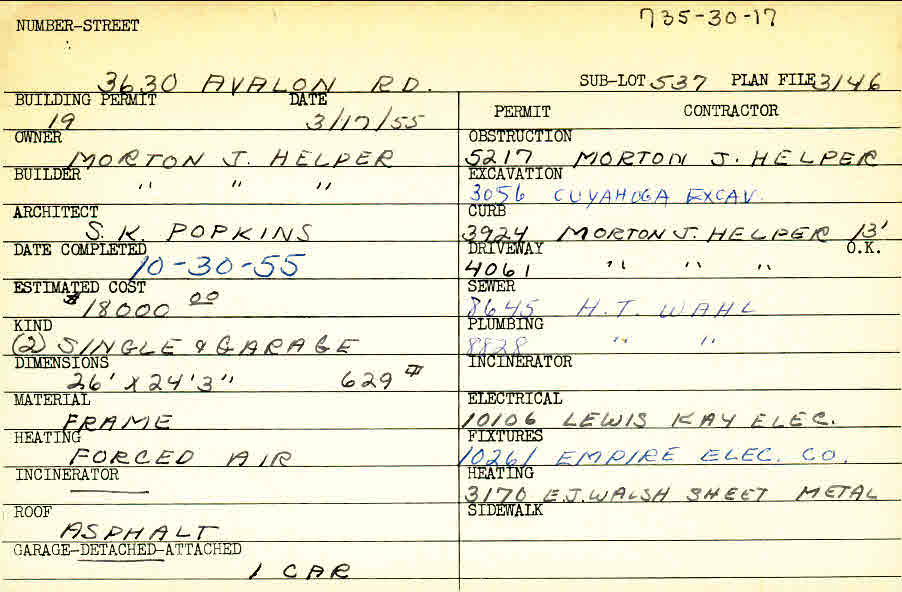 735-30-17
NUMBER-STREET
3630 AVALON RD.
SUB-LOT 537 PLAN FILE 3146
BUILDING PERMIT DATE
19 3/17/55
OWNER
MORTON J. HELPER
BUILDER
" " "
ARCHITECT
S. K. POPKINS
DATE COMPLETED
10-30-55
ESTIMATED COST
$18000 00
KIND
(2) SINGLE & GARAGE
DIMENSIONS
26' X 24'3" 629 #
MATERIAL
FRAME
HEATING
FORCED AIR
INCINERATOR
ROOF
ASPHALT
GARAGE-DETACHED-ATTACHED
1 CAR
PERMIT CONTRACTOR
OBSTRUCTION
5217 MORTON J. HELPER
EXCAVATION
3056 CUYAHOGA EXCAV.
CURB
3924 MORTON J. HELPER 13'
DRIVEWAY O.K.
4061 " " "
SEWER
8645 H.T. WAHL
PLUMBING
8828 " "
INCINERATOR
ELECTRICAL
10106 LEWIS KAY ELEC.
FIXTURES
10261 EMPIRE ELEC. CO.
HEATING
3170 E.J. WALSH SHEET METAL
SIDEWALK